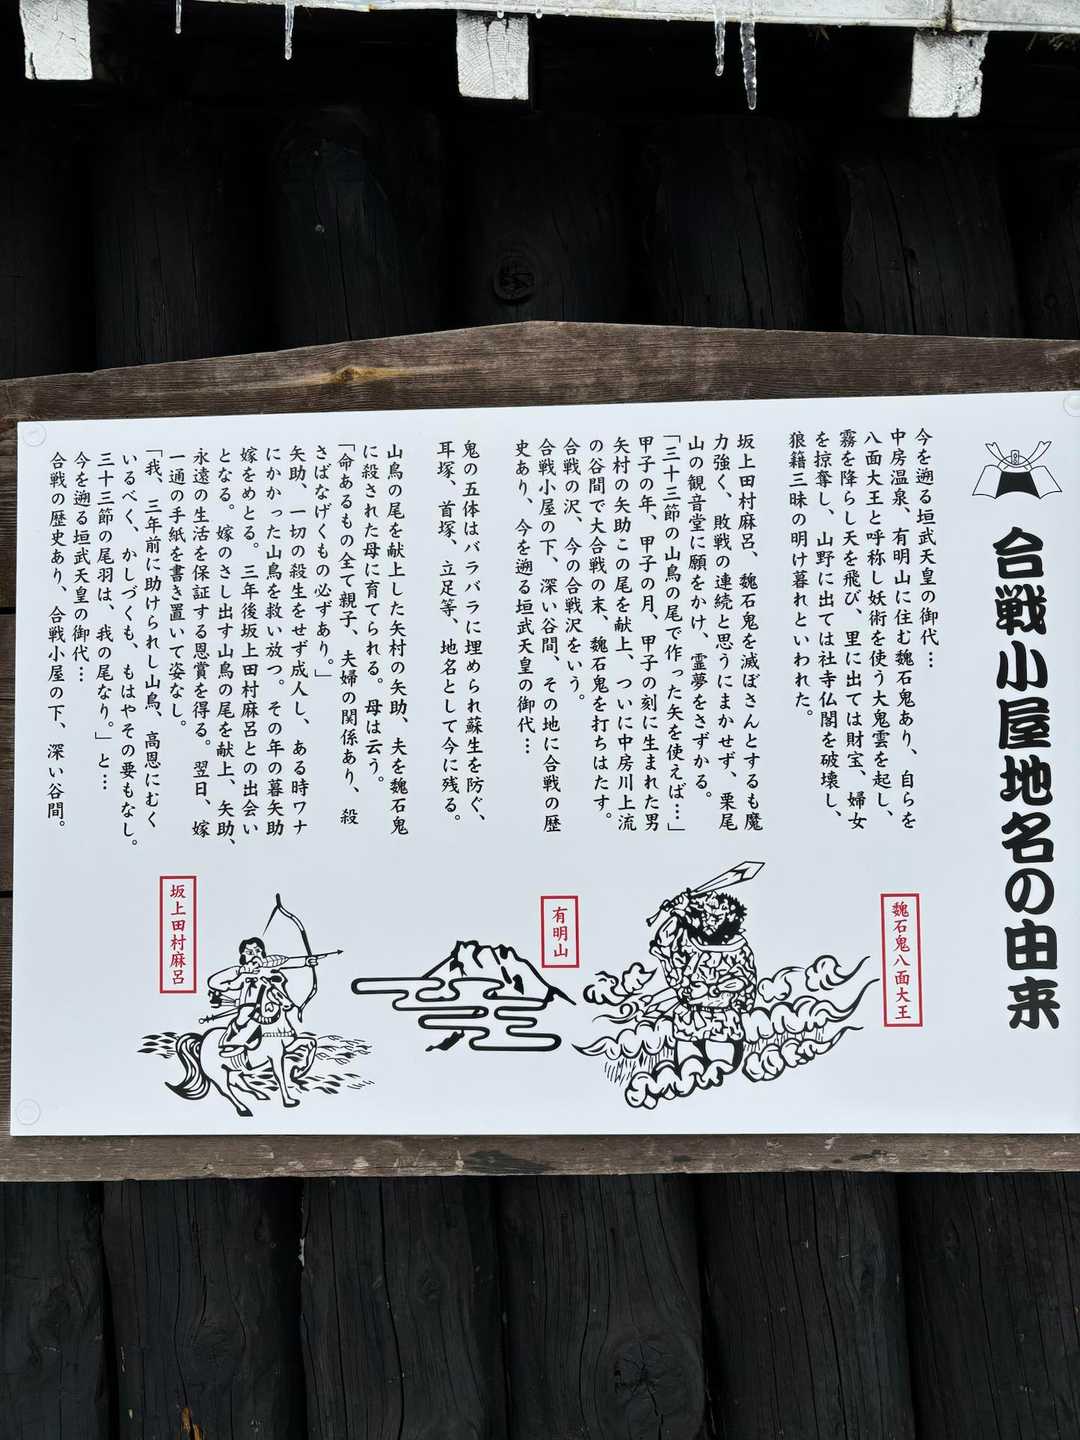 合戦小屋地名の由来
今を遡る垣武天皇の御代…
中房温泉、有明山に住む魏石鬼あり、自らを
八面大王と呼称し妖術を使う大鬼雲を起し、
霧を降らし天を飛び、里に出ては財宝、婦女
を掠奪し、山野に出ては社寺仏閣を破壊し、
狼籍三昧の明け暮れといわれた。
坂上田村麻呂、魏石鬼を滅ぼさんとするも魔
力強く、敗戦の連続と思うにまかせず、栗尾
山の観音堂に願をかけ、霊夢をさずかる。
「三十三節の山鳥の尾で作った矢を使えば…」
甲子の年、甲子の月、甲子の刻に生まれた男
矢村の矢助この尾を献上、ついに中房川上流
の谷間で大合戦の末、魏石鬼を打ちはたす。
合戦の沢、今の合戦沢をいう。
合戦小屋の下、深い谷間、その地に合戦の歴
史あり、今を遡る垣武天皇の御代…
鬼の五体はバラバラに埋められ蘇生を防ぐ、
耳塚、首塚、立足等、地名として今に残る。
山鳥の尾を献上した矢村の矢助、夫を魏石鬼
に殺された母に育てられる。母は云う。
「命あるもの全て親子、夫婦の関係あり、殺
さばなげくもの必ずあり。」
矢助、一切の殺生をせず成人し、ある時ワナ
にかかった山鳥を救い放つ。その年の暮矢助
嫁をめとる。三年後坂上田村麻呂との出会い
となる。嫁のさし出す山鳥の尾を献上、矢助、
永遠の生活を保証する恩賞を得る。翌日、嫁
一通の手紙を書き置いて姿なし。
「我、三年前に助けられし山鳥、高恩にむく
いるべく、かしづくも、もはやその要もなし。
三十三節の尾羽は、我の尾なり。」と…
今を遡る垣武天皇の御代…
合戦の歴史あり、合戦小屋の下、深い谷間。
魏石鬼八面大王
有明山
坂上田村麻呂